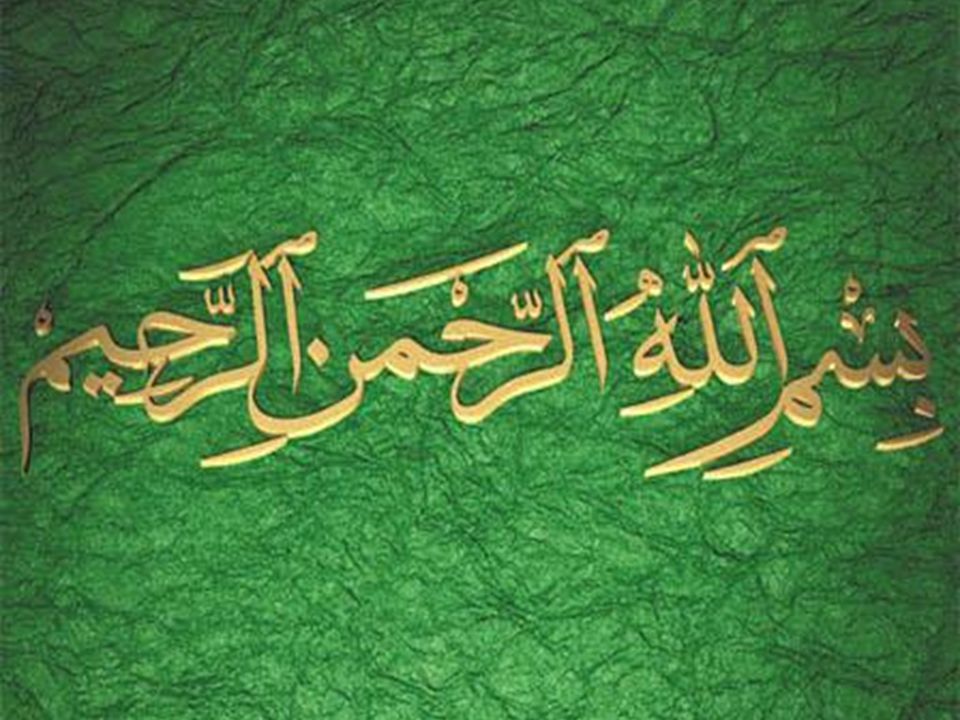 بِسْمِ ٱللَّهِ ٱلرَّحْمنِ ٱلرَّحِيمْ